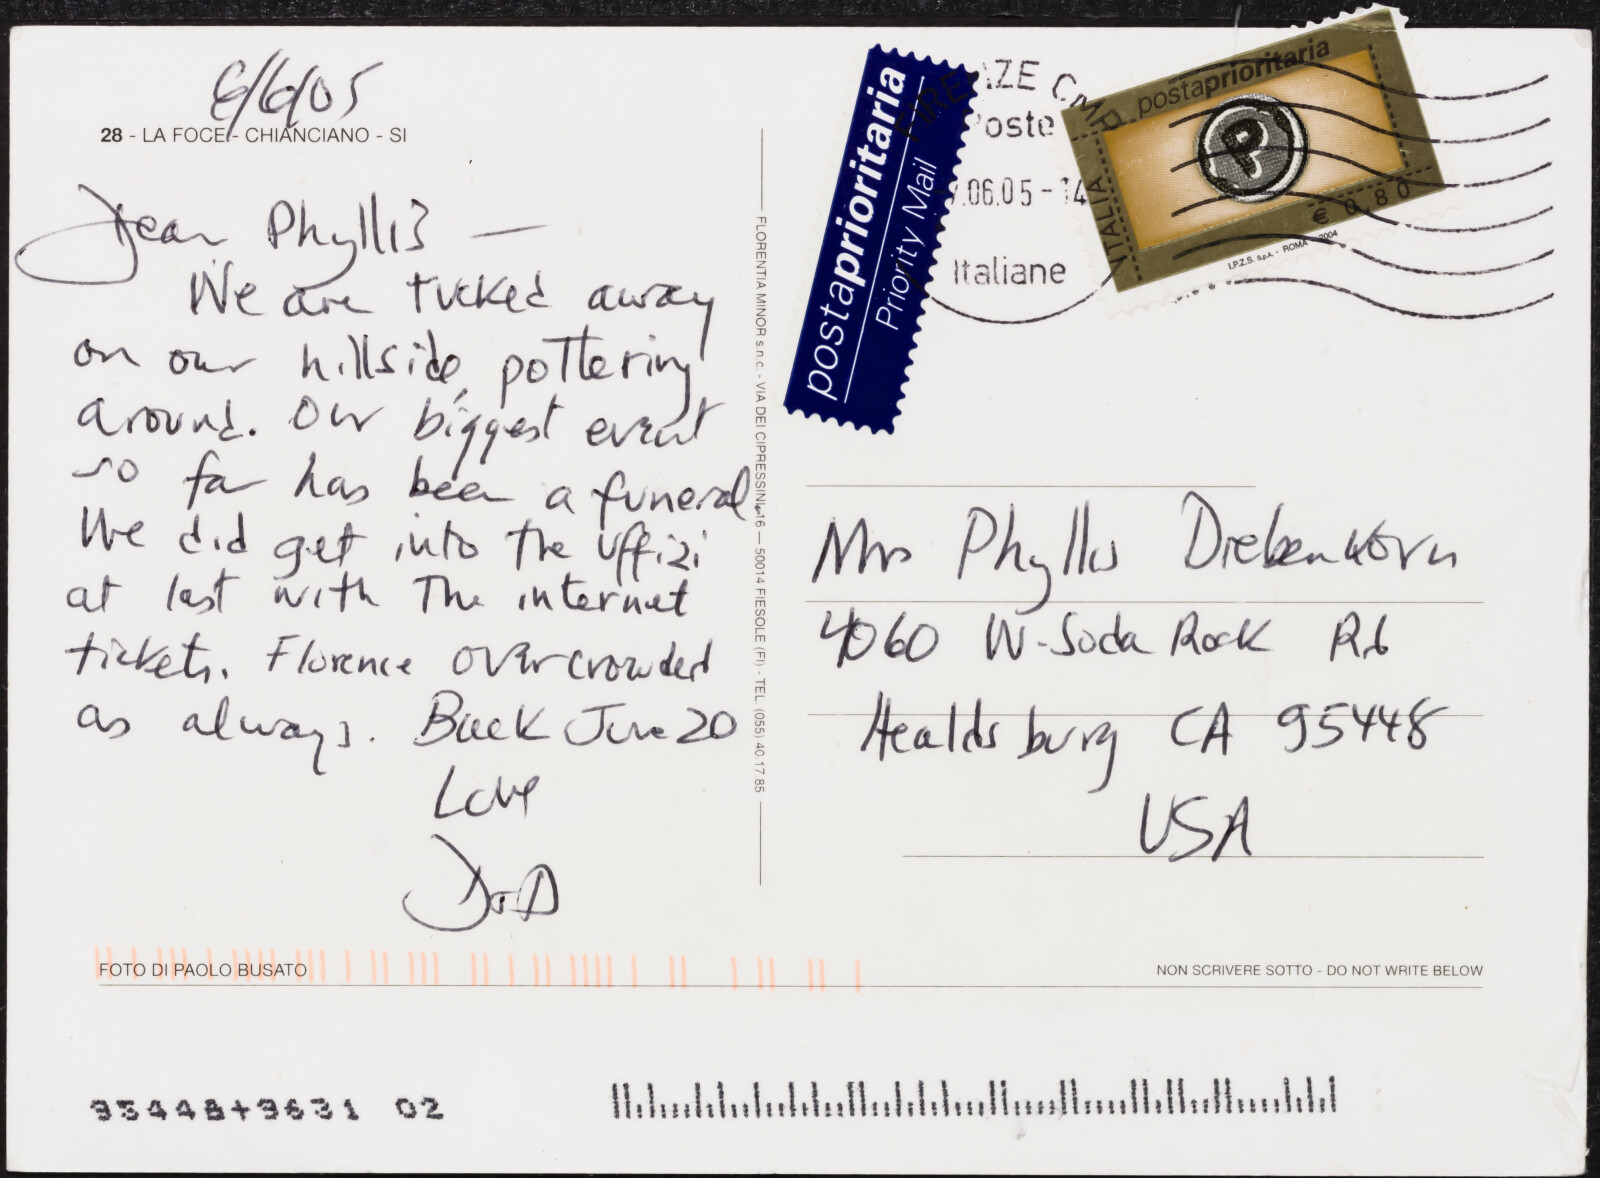 6/6/05
28 - LA FOCE - CHIANCIANO - SI
Dear Phyllis —
We are tucked away
on our hillside, pottering
around. Our biggest event
so far has been a funeral.
We did get into the Uffizi
at last with the internet
tickets. Florence overcrowded
as always. Back June 20
Love
FOTO DI PAOLO BUSATO
95448+9631 02
FLORENTIA MINOR s.n.c. - VIA DEI CIPRESSINI, 16 — 50014 FIESOLE (FI) - TEL. (055) 40.17.85
postaprioritaria
Priority Mail
FIRENZE CMP
Poste
.06.05 - 14
Italiane
postaprioritaria
P
ITALIA
€ 0,80
I.P.Z.S. S.p.A. - ROMA - 2004
Mrs Phyllis Diebenkorn
4060 W. Soda Rock Rd
Healdsburg CA 95448
USA
NON SCRIVERE SOTTO - DO NOT WRITE BELOW